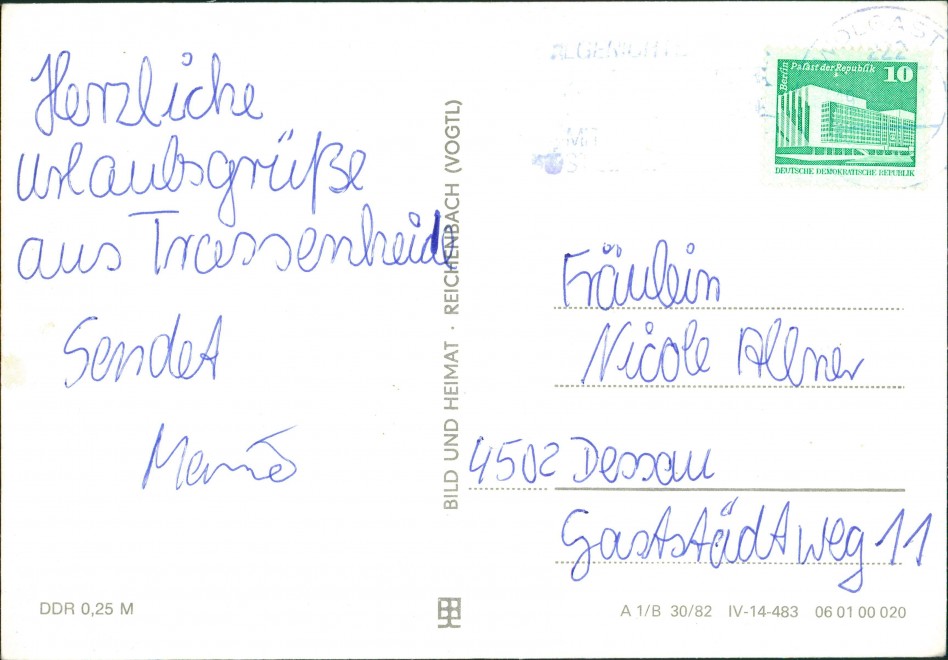 Herzliche
Urlaubsgrüße
aus Trassenheide
Sendet
BILD UND HEIMAT · REICHENBACH (VOGTL)
WOLGAST
222
MIT
Berlin Palast der Republik 10
DEUTSCHE DEMOKRATISCHE REPUBLIK
Fräulein
Nicole Allner
4502 Dessau
Gaststädtweg 11
DDR 0,25 M
A 1/B 30/82 IV-14-483 06 01 00 020